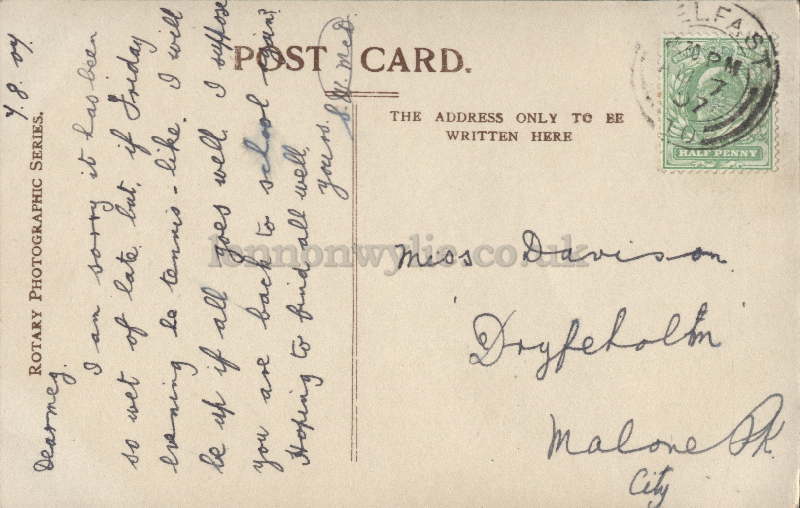 POST CARD.
ROTARY PHOTOGRAPHIC SERIES.
THE ADDRESS ONLY TO BE
WRITTEN HERE
7.8.07
Dear meg
I am sorry it has been
so wet of late but, if Friday
evening be tennis-like. I will
be up if all goes well. I suppose
you are back to school again?
Hoping to find all well,
yours.
Miss Davison
'Dryfeholm'
Malone Pk.
City
BELFAST
PM
7
07
HALF PENNY
lennonwylie.co.uk